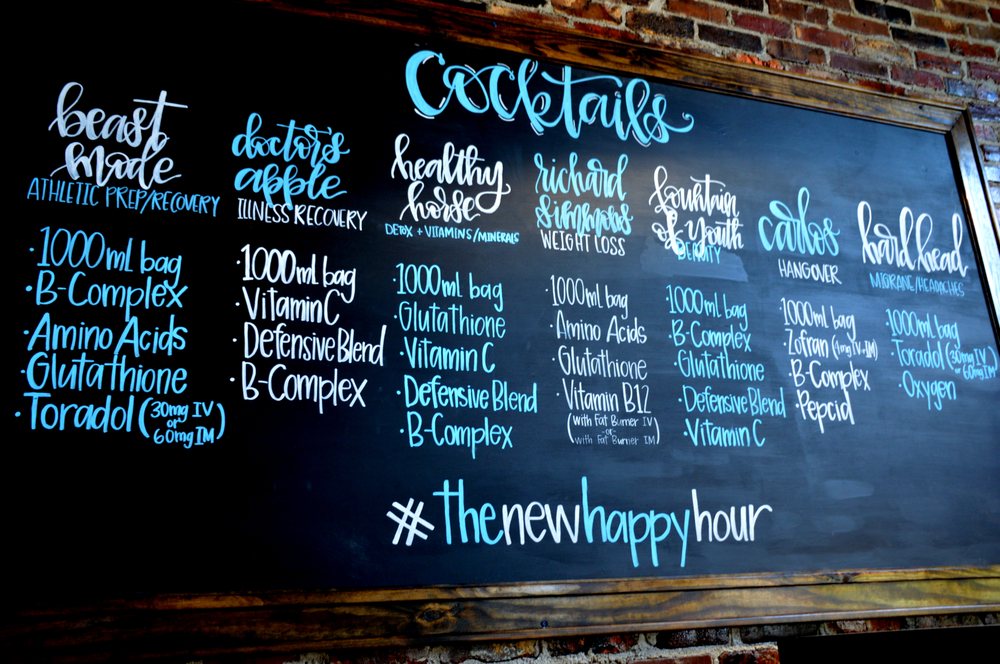 Cocktails
beast
mode
ATHLETIC PREP/RECOVERY
·1000ml bag
·B-Complex
·Amino Acids
·Glutathione
·Toradol (30mg IV
or
60mg IM)
doctors
apple
ILLNESS RECOVERY
·1000ml bag
·Vitamin C
·Defensive Blend
·B-Complex
healthy
horse
DETOX + VITAMINS/MINERALS
·1000ml bag
·Glutathione
·Vitamin C
·Defensive Blend
·B-Complex
richard
simmons
WEIGHT LOSS
·1000ml bag
·Amino Acids
·Glutathione
·Vitamin B12
(with Fat Burner IV
-or-
with Fat Burner IM)
fountain
of Youth
BEAUTY
·1000ml bag
·B-Complex
·Glutathione
·Defensive Blend
·Vitamin C
carlos
HANGOVER
·1000ml bag
·Zofran (4mg IV-IM)
·B-Complex
·Pepcid
hard head
MIGRANE/HEADACHES
·1000ml bag
·Toradol (30mg IV
or
60mg IM)
·Oxygen
#thenewhappyhour